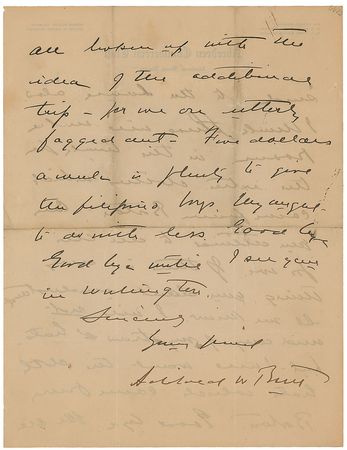 all broken up with the
idea of the additional
trip - for we are utterly
fagged out - Five dollars
a week is plenty to give
the filipino boys. They ought
to do with less. Good bye
Good bye until I see you
in Washington.
Sincerely
Your friend
Archibald W Butt